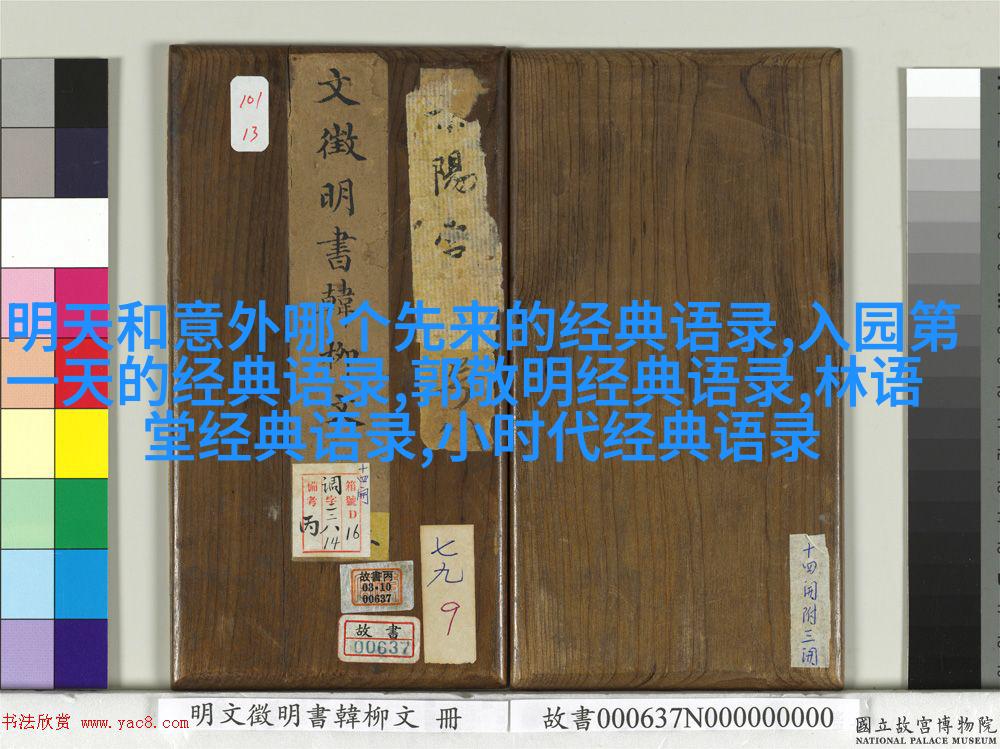 明天和意外哪个先来的经典语录,入园第
一天的经典语录,郭敬明经典语录,林语
堂经典语录,小时代经典语录
101
13
文徵明書韓柳文
陽宮
十四開
箱號D16
調字三八14
備考
丙
故書丙
03·10
00637
故書
00637
七九
9
十四開附三開
书法欣赏 www.yac8.com
明文徵明書韓柳文 冊
故書000637N000000000
國立故宮博物院
NATIONAL PALACE MUSEUM